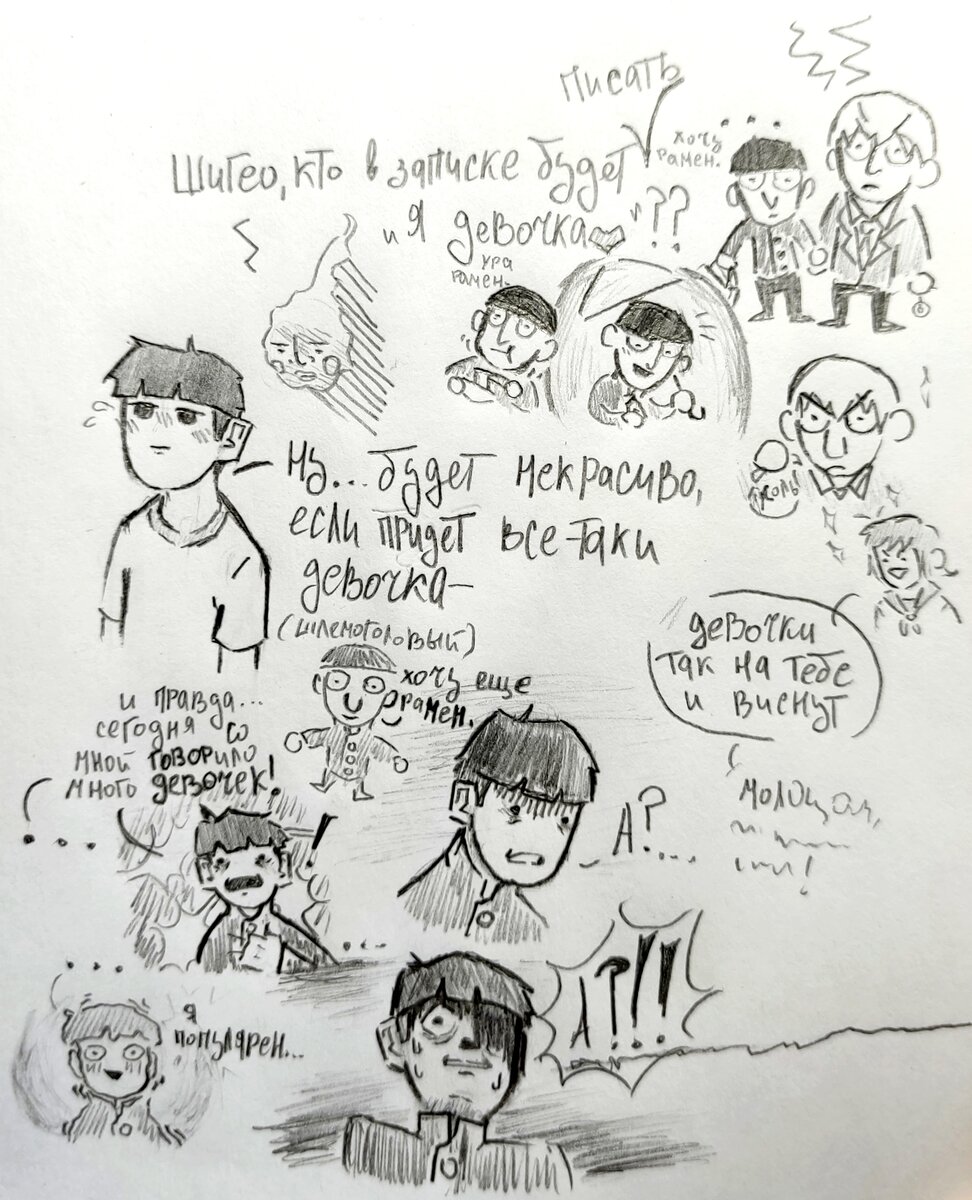 писать
Шигео, кто в записке будет
"Я девочка"??
хочу
рамен.
ура
рамен.
Ну... будет некрасиво,
если придет все-таки
девочка-
(шлемоголовый)
хочу еще
рамен.
девочки
так на тебе
и виснут
молодая,
и правда...
сегодня со
мной говорило
много девочек!
...
!
А?...
...
А?!!
...
я
популярен...